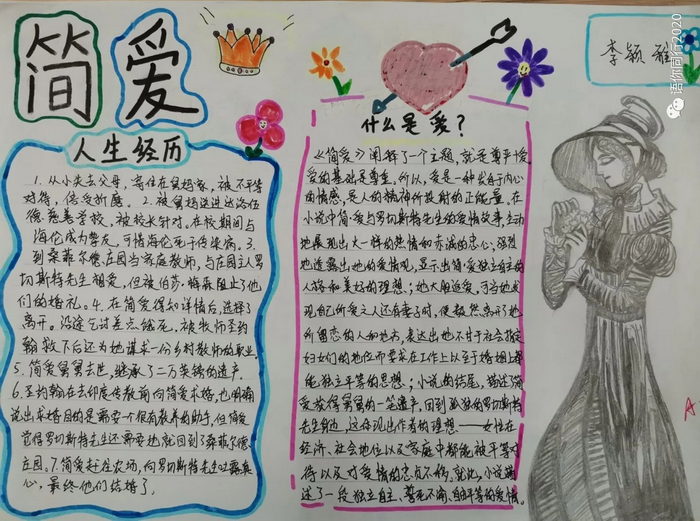 简爱
李颖雅
语你同行2020
人生经历
1. 从小失去父母，寄住在舅妈家，被不平等
对待，倍受折磨。2. 被舅妈送进达洛伍
德慈善学校，被校长针对。在校期间与
海伦成为挚友，可惜海伦死于传染病。3.
到桑菲尔德庄园当家庭教师，与庄园主人罗
切斯特先生相爱，但被伯莎·梅森阻止了他
们的婚礼。4. 在简爱得知详情后，选择了
离开。沿途乞讨差点饿死，被牧师圣约
翰救下后还为她谋求一份乡村教师的职业。
5. 简爱舅舅去世，继承了二万英镑的遗产。
6. 圣约翰在去印度传教前向简爱求婚，也明确
说出求婚目的是需要个很有教养的助手，但简爱
觉得罗切斯特先生还需要她就回到了桑菲尔德
庄园。7. 简爱赶往农场，向罗切斯特先生吐露真
心，最终他们结婚了。
什么是爱？
《简爱》阐释了一个主题，就是尊严+爱
爱的基础是尊重。所以，爱是一种发自于内心
的情感，是人的精神所投射的正能量。在
小说中简·爱与罗切斯特先生的爱情故事，生动
地展现出火一样的热情和赤诚的忠心，强烈
地透露出她的爱情观，显示出简·爱独立自主的
人格和美好的理想；她大胆追爱，可当她发
现自己所爱之人还有妻子时，便毅然离开了她
所留恋的人和地方，表达出她不甘于社会指定
妇女们的地位而要求在工作上以至于婚姻上都
能独立平等的思想；小说的结尾，描述简
爱获得舅舅的一笔遗产，回到孤独的罗切斯特
先生身边，这体现出作者的理想——女性在
经济、社会地位以及家庭中都能被平等对
待以及对爱情的忠贞不移。就此，小说讲
述了一段独立自主、誓死不渝、自由平等的爱情。
A